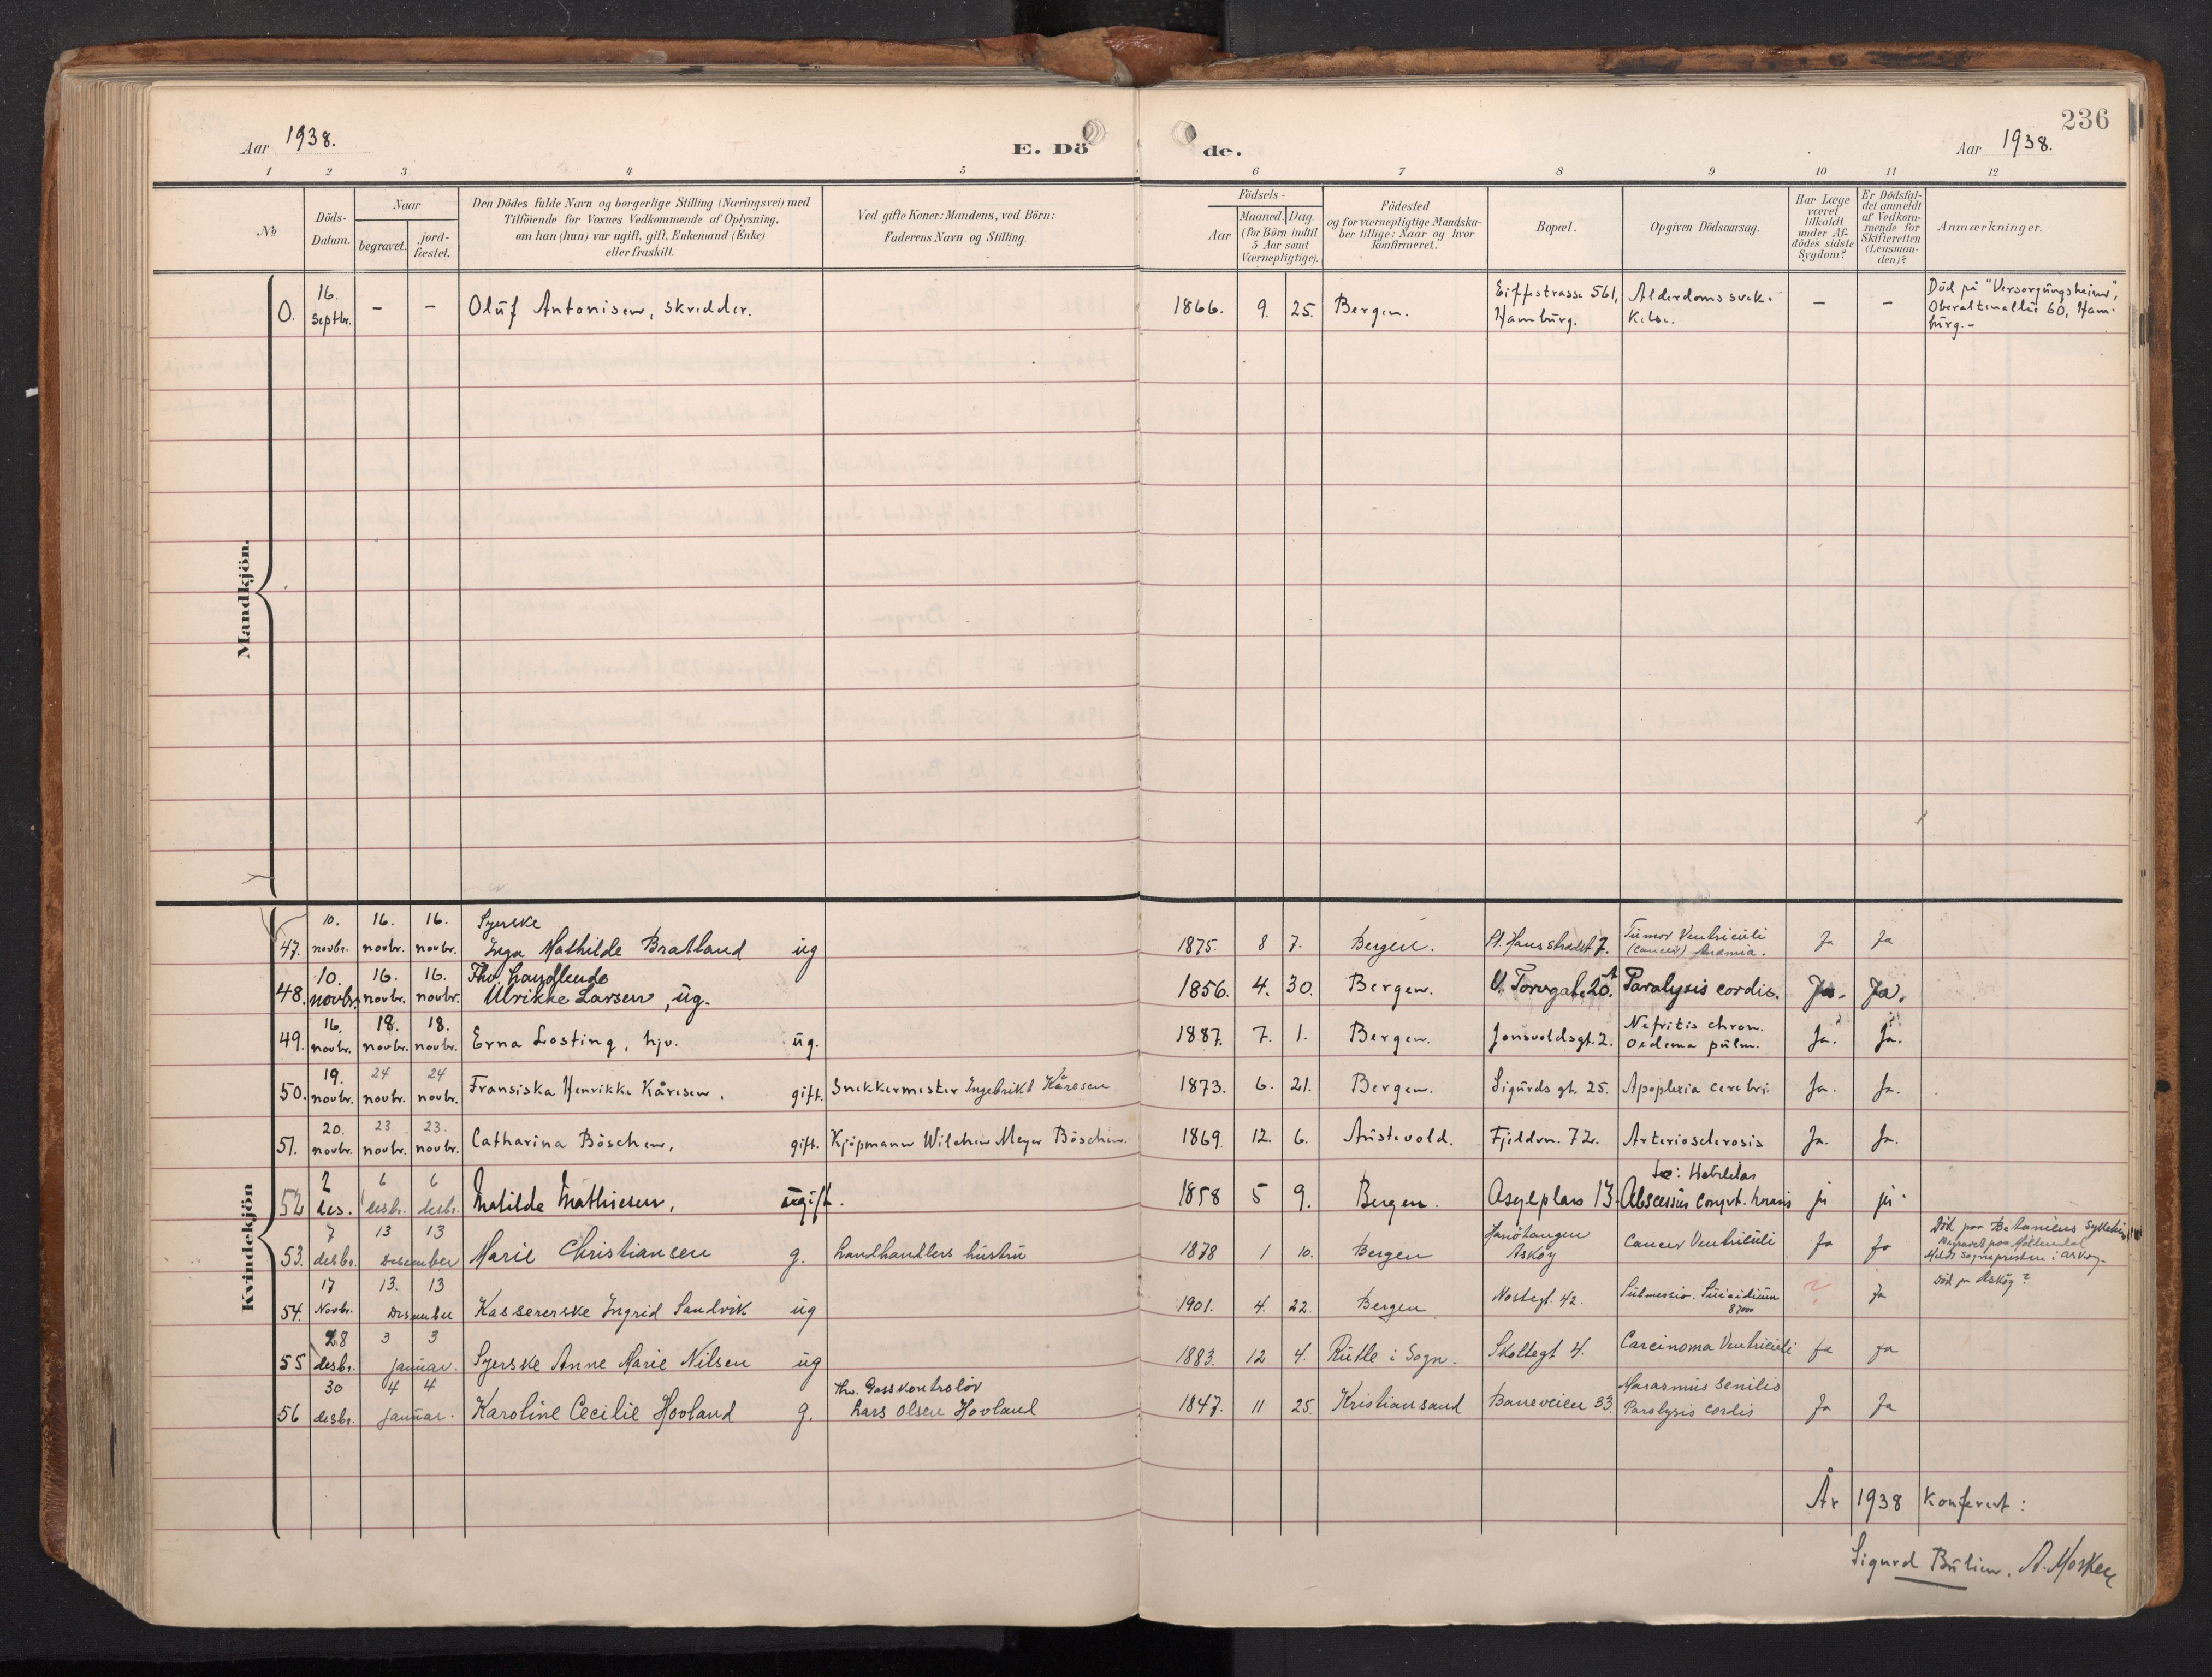 236
Aar 1938.
E. Dö
de.
Aar 1938.
1 2 3 4 5 6 7 8 9 10 11 12
No
Döds-
Datum.
Naar
begravet.
jord-
fæstet.
Den Dödes fulde Navn og borgerlige Stilling (Næringsvei) med
Tilföiende for Voxnes Vedkommende af Oplysning,
om han (hun) var ugift, gift, Enkemand (Enke)
eller fraskilt.
Ved gifte Koner: Mandens, ved Börn:
Faderens Navn og Stilling.
Födsels-
Aar
Maaned. Dag.
(for Börn indtil
5 Aar samt
Værnepligtige).
Födested
og for værnepligtige Mandska-
ber tillige: Naar og hvor
Konfirmeret.
Bopæl.
Opgiven Dödsaarsag.
Har Læge
været
tilkaldt
under Af-
dödes sidste
Sygdom?
Er Dödsfal-
det anmeldt
af Vedkom-
mende for
Skifteretten
(Lensman-
den)?
Anmærkninger.
Mandkjön.
0.
16.
Septbr.
– –
Oluf Antonisen, skredder.
1866. 9. 25. Bergen.
Eiffestrasse 561,
Hamburg.
Alderdomssvek-
kelse.
– –
Död på "Versorgungsheim",
Oberaltenallee 60, Ham-
burg.-
Kvindekjön
10. 16. 16. Syerske
47. novbr. novbr. novbr. Inga Mathilde Bratland ug
1875. 8 7. Bergen. St. Hansstredet 7.
Tumor Ventriculi
(cancer) Anæmia.
Ja Ja
10. 16. 16. Fhv. handlende
48. novbr. novbr. novbr. Ulrikke Larsen, ug.
1856. 4. 30. Bergen. V. Torvgate 20. Paralysis cordis. Ja. Ja.
16. 18. 18.
49. novbr. novbr. novbr. Erna Losting, hjv. ug.
1887. 7. 1. Bergen. Jonsvoldsgt. 2.
Nefritis chron.
Oedema pulm.
Ja. Ja.
19. 24 24
50. novbr. novbr. novbr. Fransiska Henrikke Kåresen, gift. Snekkermester Ingebrikt Kåresen
1873. 6. 21. Bergen. Sigurds gt. 25. Apoplexia cerebri. Ja. Ja.
20. 23 23.
51. novbr. novbr. novbr. Catharina Böschen, gift. Kjöpmann Wilchen Meyer Böschen.
1869. 12. 6. Austevold. Fjeldvn. 72. Arteriosclerosis Ja. Ja.
2 6 6
52 des. desbr. desbr. Matilde Mathiesen, ugift.
1858 5 9. Bergen. Asylplass 13. Abscessus
ja ja.
7 13 13
53. desbr. Desember Marie Christiansen g. Landhandlers hustru
1878 1 10. Bergen
Askøy
Cancer Ventriculi
Ja Ja
Död paa Betaniens sykehus
Begravet paa Møllendal
Meldt sognepresten i Askøy.
17 13. 13
54. Novbr. Desember Kassererske Ingrid Sandvik ug
1901. 4. 22. Bergen Nøstegt. 42.
Submersio. Suicidium
? Ja
Död på Askøy?
28 3 3
55 desbr. januar. Syerske Anne Marie Nilsen ug
1883. 12 4. Rutle i Sogn. Skottegt 4. Carcinoma Ventriculi Ja Ja
30 4 4
56 desbr. januar. Karoline Cecilie Hovland g.
fhv. Gasskontrolør
Lars Olsen Hovland
1847. 11 25. Kristiansand Baneveien 33.
Marasmus senilis
Paralysis cordis
Ja Ja
År 1938 Konferert:
Sigurd Bulien. A. Mosken